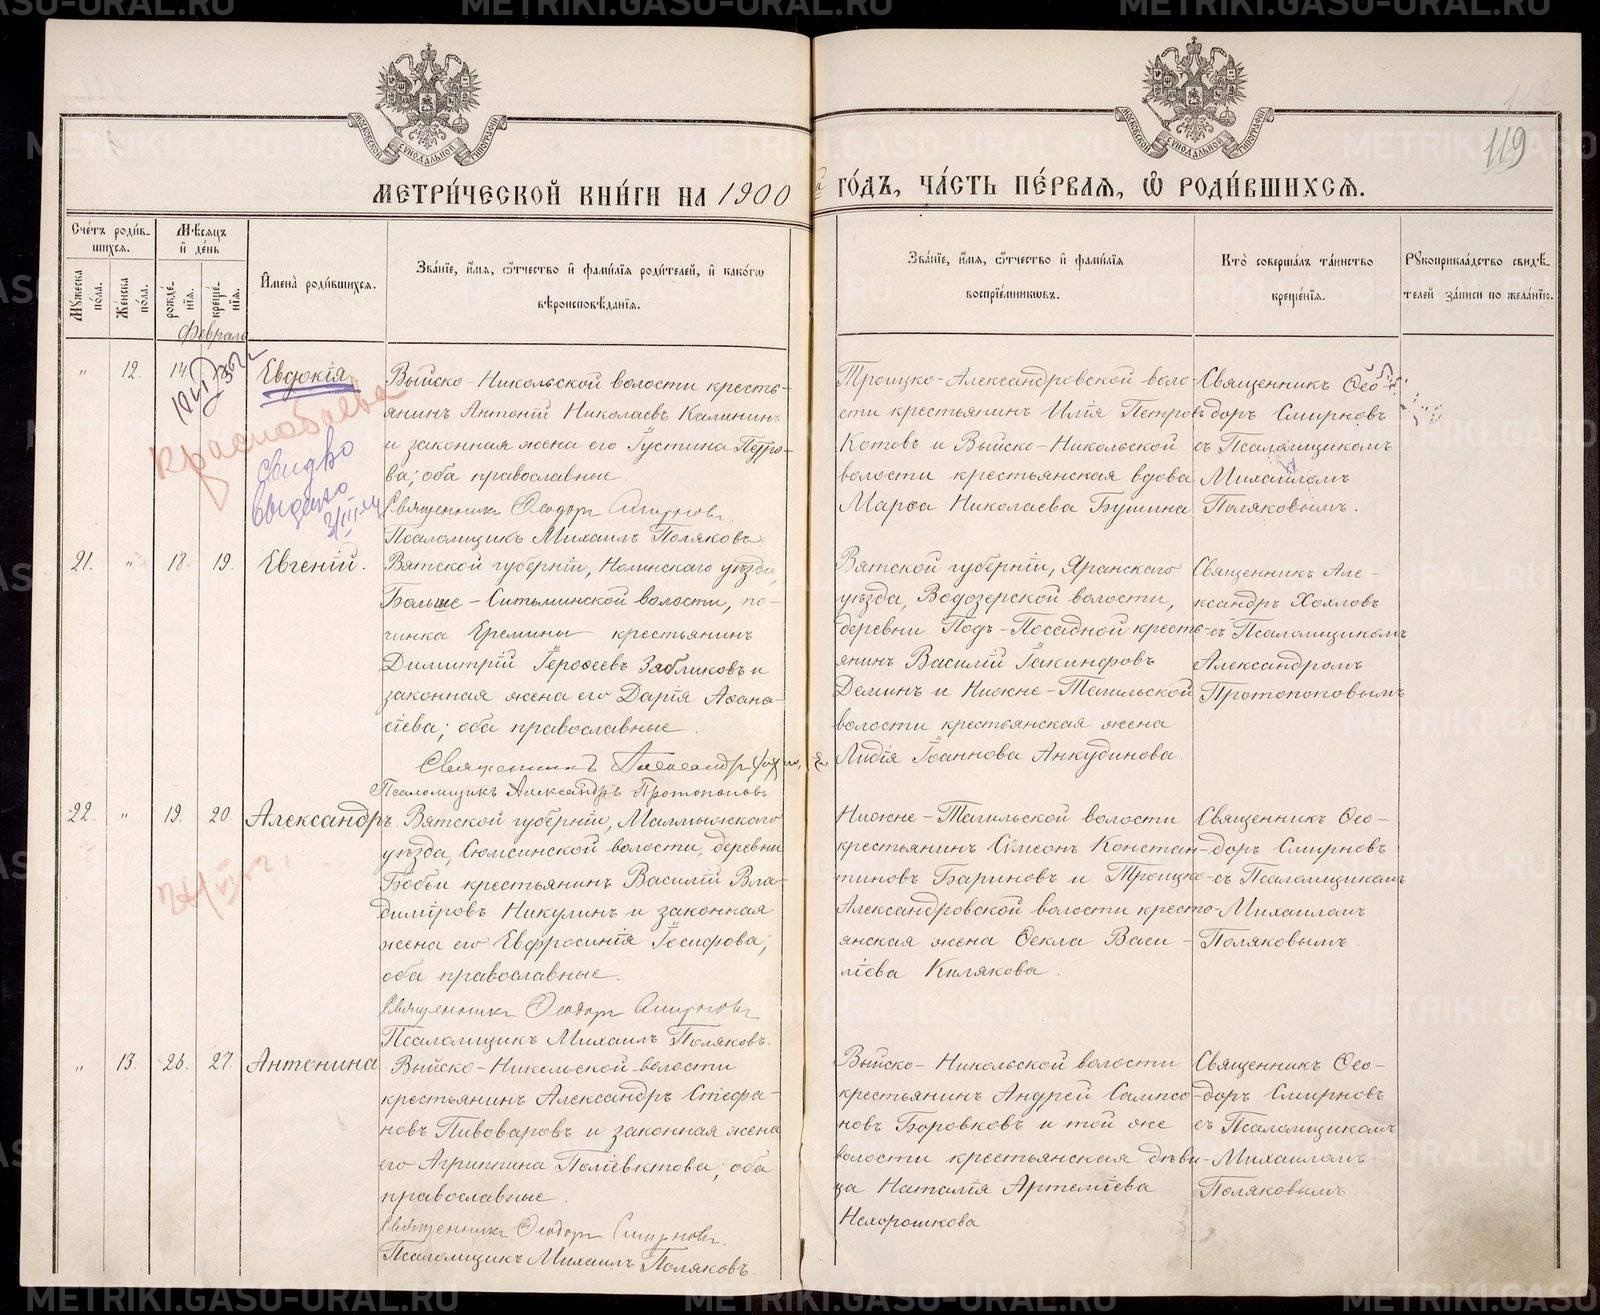 METRIKI.GASU-URAL.RU
119
МОСКОВСКОЙ СѴНОДАЛЬНОЙ ТИПОГРАФІИ
МОСКОВСКОЙ СѴНОДАЛЬНОЙ ТИПОГРАФІИ
МЕТРИ́ЧЕСКОЙ КНИ́ГИ НА 1900 ГО́ДЪ, ЧА́СТЬ ПЕ́РВАѦ, Ѽ РОДИ́ВШИХСѦ.
Счетъ родив-
шихсѧ.
Мужеска
пола.
Женска
пола.
Мѣсѧцъ
и день
рожде-
нія.
креще-
нія.
Имена родившихсѧ.
Званіе, имѧ, ѿчество и фамиліѧ родителей, и какогѡ
вѣроисповѣданіѧ.
Званіе, имѧ, ѿчество и фамиліѧ
воспріемниковъ.
Кто совершалъ таинство
крещеніѧ.
Рукоприкладство свидѣ-
телей записи по желанію.
Февраля
" 12. 14
Евдокія
Краснобаева
свид-во
выдано
Выйско-Никольской волости кресть-
янинъ Антоній Николаевъ Калининъ
и законная жена его Іустина Петро-
ва; оба православные.
Священникъ Ѳеодоръ Смирновъ.
Псаломщикъ Михаилъ Поляковъ
Троицко-Александровской воло-
сти крестьянинъ Илія Петровъ
Котовъ и Выйско-Никольской
волости крестьянская вдова
Марѳа Николаева Бушина
Священникъ Ѳео-
доръ Смирновъ
съ Псаломщикомъ
Михаиломъ
Поляковымъ.
21. " 18. 19.
Евгеній.
Вятской губерніи, Нолинскаго уѣзда,
Больше-Ситьминской волости, по-
чинка Еремины крестьянинъ
Димитрій Іероѳеевъ Зябликовъ и
законная жена его Дарія Аѳана-
сіева; оба православные.
Священникъ Александръ
Псаломщикъ Александръ Протопоповъ
Вятской губерніи, Яранскаго
уѣзда, Водозерской волости,
деревни Подъ-Посадной кресть-
янинъ Василій Іакинфовъ
Деминъ и Нижне-Тагильской
волости крестьянская жена
Лидія Іоаннова Анкудинова.
Священникъ Але-
ксандръ Хохловъ
съ Псаломщикомъ
Александромъ
Протопоповымъ
22. " 19. 20
Александръ.
Вятской губерніи, Малмыжскаго
уѣзда, Сюмсинской волости, деревни
Бобьи крестьянинъ Василій Вла-
диміровъ Никулинъ и законная
жена его Евфросинія Іосифова;
оба православные.
Священникъ Ѳеодоръ Смирновъ
Псаломщикъ Михаилъ Поляковъ.
Нижне-Тагильской волости
крестьянинъ Сѵмеонъ Констан-
тиновъ Бариновъ и Троицко-
Александровской волости кресть-
янская жена Ѳекла Васи-
ліева Килякова.
Священникъ Ѳео-
доръ Смирновъ
съ Псаломщикомъ
Михаиломъ
Поляковымъ.
" 13. 26. 27.
Антонина
Выйско-Никольской волости
крестьянинъ Александръ Стефа-
новъ Пивоваровъ и законная жена
его Агриппина Поліевктова; оба
православные.
Священникъ Ѳеодоръ Смирновъ.
Псаломщикъ Михаилъ Поляковъ.
Выйско-Никольской волости
крестьянинъ Андрей Сампсо-
новъ Боровковъ и той же
волости крестьянская дѣви-
ца Наталія Артеміева
Нехорошкова.
Священникъ Ѳео-
доръ Смирновъ
съ Псаломщикомъ
Михаиломъ
Поляковымъ
METRIKI.GASU-URAL.RU